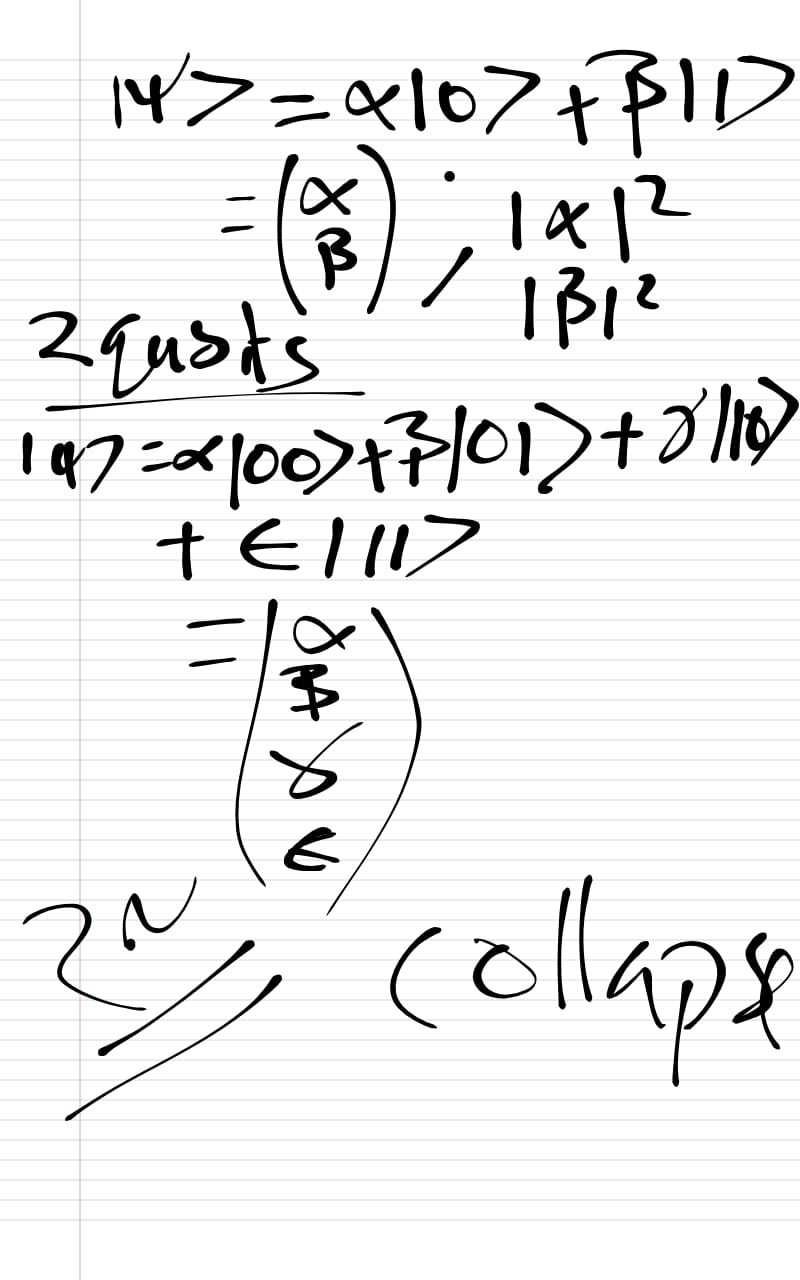 |ψ> = α|0> + β|1>
= (α β) ; |α|²
|β|²
2 qubits
|ψ> = α|00> + β|01> + γ|10>
+ ∈|11>
= (α
β
γ
∈)
2^N collapse